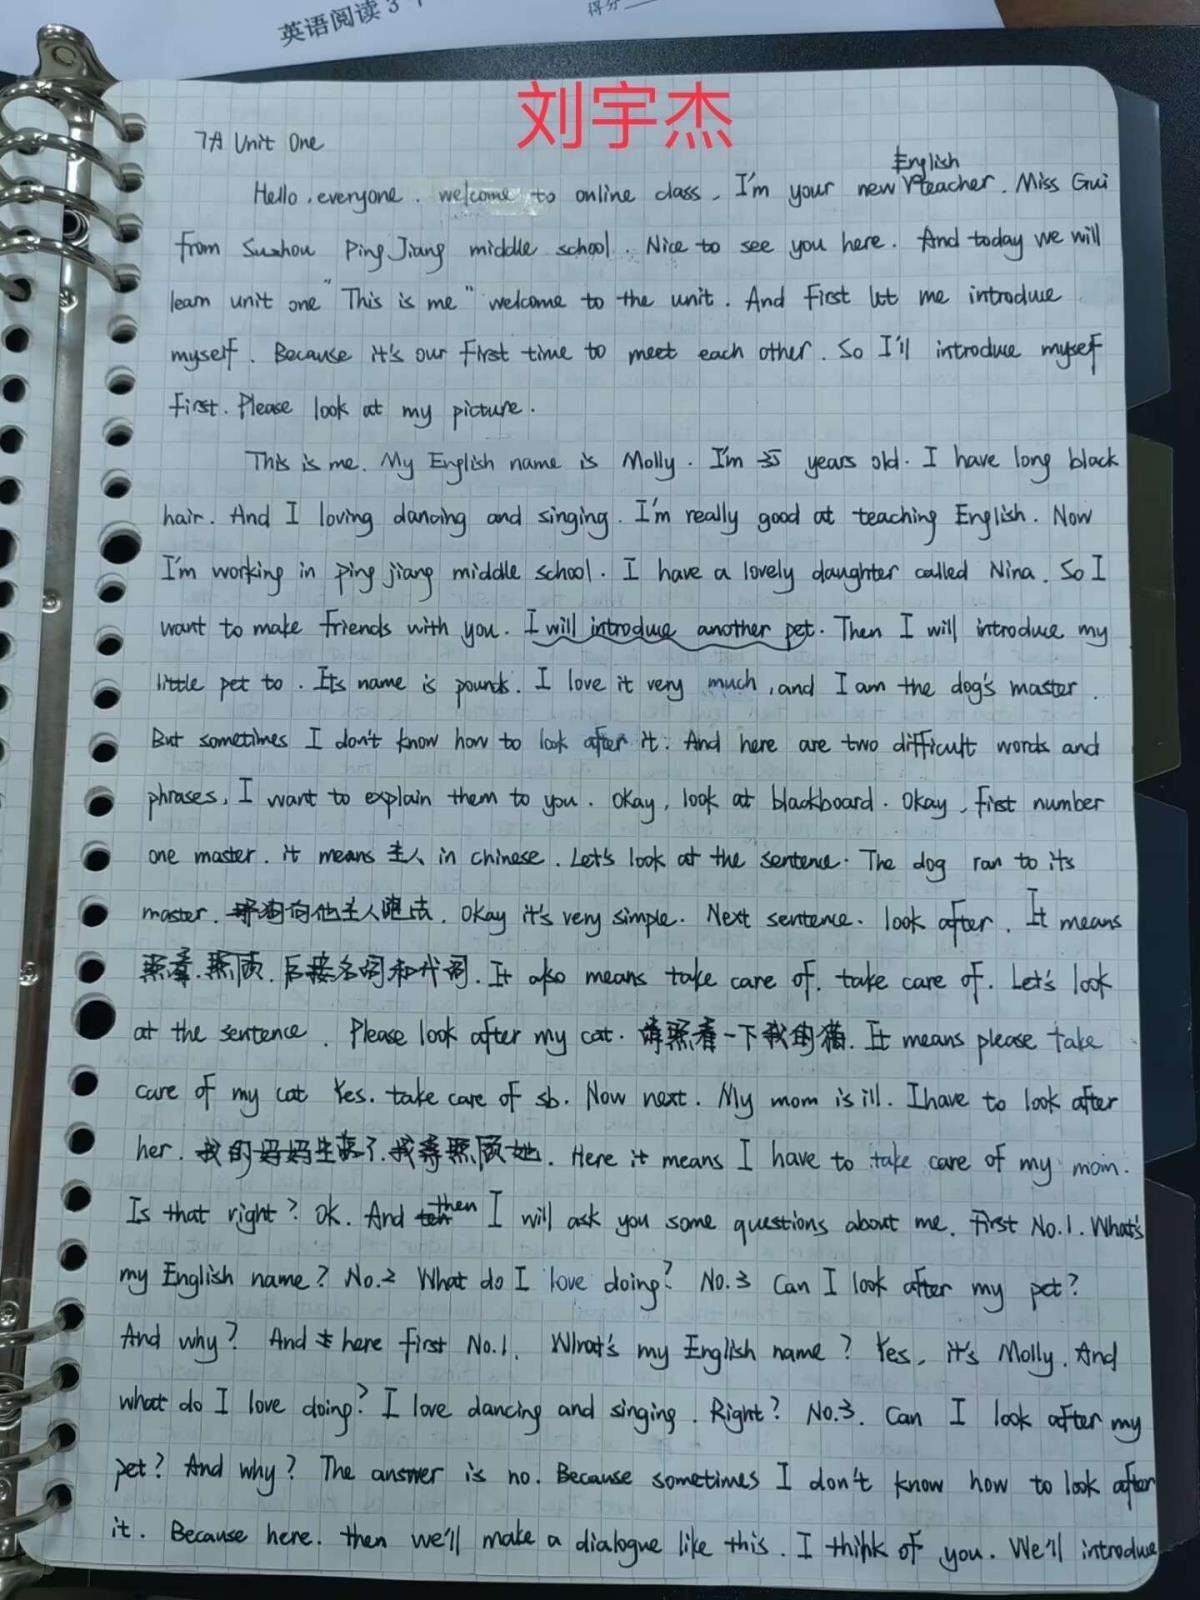 英语阅读3
得分
刘宇杰
7A Unit One
English
Hello, everyone. welcome to online class. I'm your new teacher. Miss Gui
from Suzhou Ping Jiang middle school. Nice to see you here. And today we will
learn unit one "This is me" welcome to the unit. And first let me introduce
myself. Because it's our first time to meet each other. So I'll introduce mysef
first. Please look at my picture.
This is me. My English name is Molly. I'm 35 years old. I have long black
hair. And I loving dancing and singing. I'm really good at teaching English. Now
I'm working in ping jiang middle school. I have a lovely daughter called Nina. So I
want to make friends with you. I will introduce another pet. Then I will introduce my
little pet to. Its name is pounds. I love it very much, and I am the dog's master.
But sometimes I don't know how to look after it. And here are two difficult words and
phrases, I want to explain them to you. Okay, look at blackboard. Okay, first number
one master. it means 主人 in chinese. Let's look at the sentence. The dog ran to its
master. 狗向他主人跑去. Okay it's very simple. Next sentence. look after. It means
照看. 照顾. 后接名词和代词. It also means take care of. take care of. Let's look
at the sentence. Please look after my cat. 请照看一下我的猫. It means please take
care of my cat Yes. take care of sb. Now next. My mom is ill. I have to look after
her. 我的妈妈生病了. 我得照顾她. Here it means I have to take care of my mom.
Is that right? Ok. And then I will ask you some questions about me. First No.1. What's
my English name? No.2 What do I love doing? No.3 Can I look after my pet?
And why? And here first No.1. What's my English name? Yes, it's Molly. And
what do I love doing? I love dancing and singing. Right? No.3. Can I look after my
pet? And why? The answer is no. Because sometimes I don't know how to look after
it. Because here. then we'll make a dialogue like this. I think of you. We'll introduce